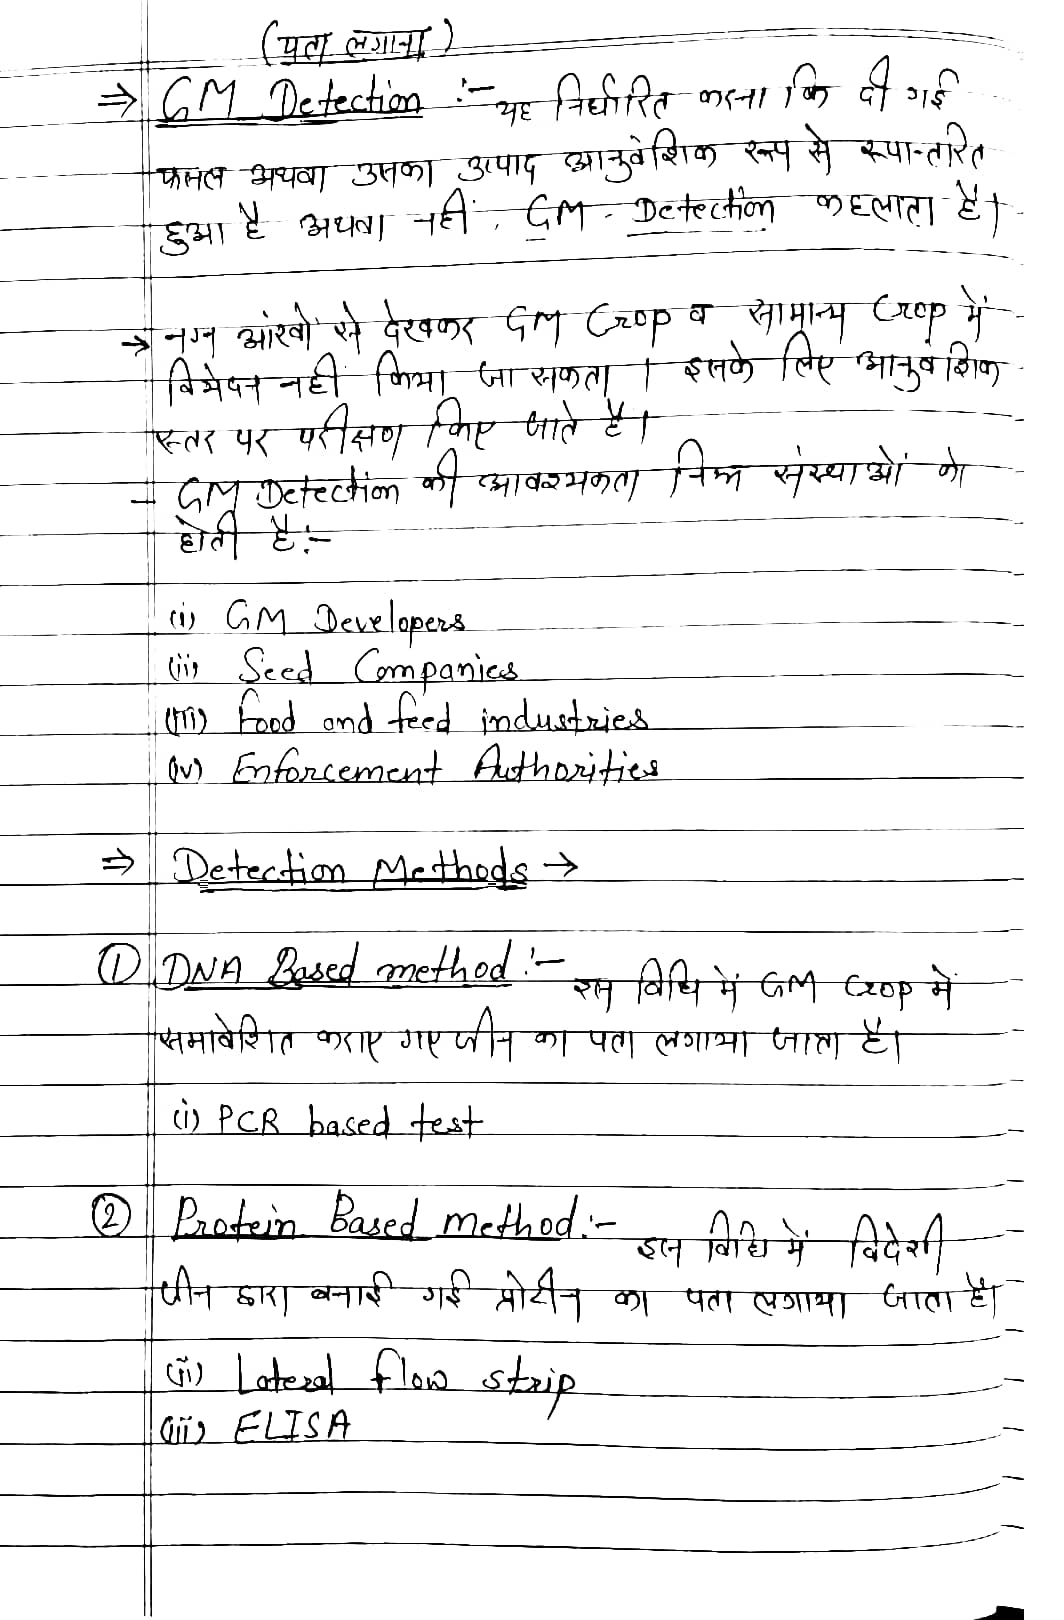 (पता लगाना)
⇒ GM Detection :- यह निर्धारित करना कि दी गई
फसल अथवा उसका उत्पाद आनुवंशिक रूप से रूपान्तरित
हुआ है अथवा नहीं, GM Detection कहलाता है।
→ नग्न आंखों से देखकर GM Crop व सामान्य Crop में
विभेदन नहीं किया जा सकता। इसके लिए आनुवंशिक
स्तर पर परीक्षण किए जाते है।
- GM Detection की आवश्यकता निम्न संस्थाओं को
होती है:-
(i) GM Developers
(ii) Seed Companies
(iii) Food and feed industries
(iv) Enforcement Authorities
⇒ Detection Methods →
① DNA Based method :- इस विधि में GM Crop में
समावेशित कराए गए जीन का पता लगाया जाता है।
(i) PCR based test
② Protein Based method :- इस विधि में विदेशी
जीन द्वारा बनाई गई प्रोटीन का पता लगाया जाता है।
(ii) Lateral flow strip
(iii) ELISA